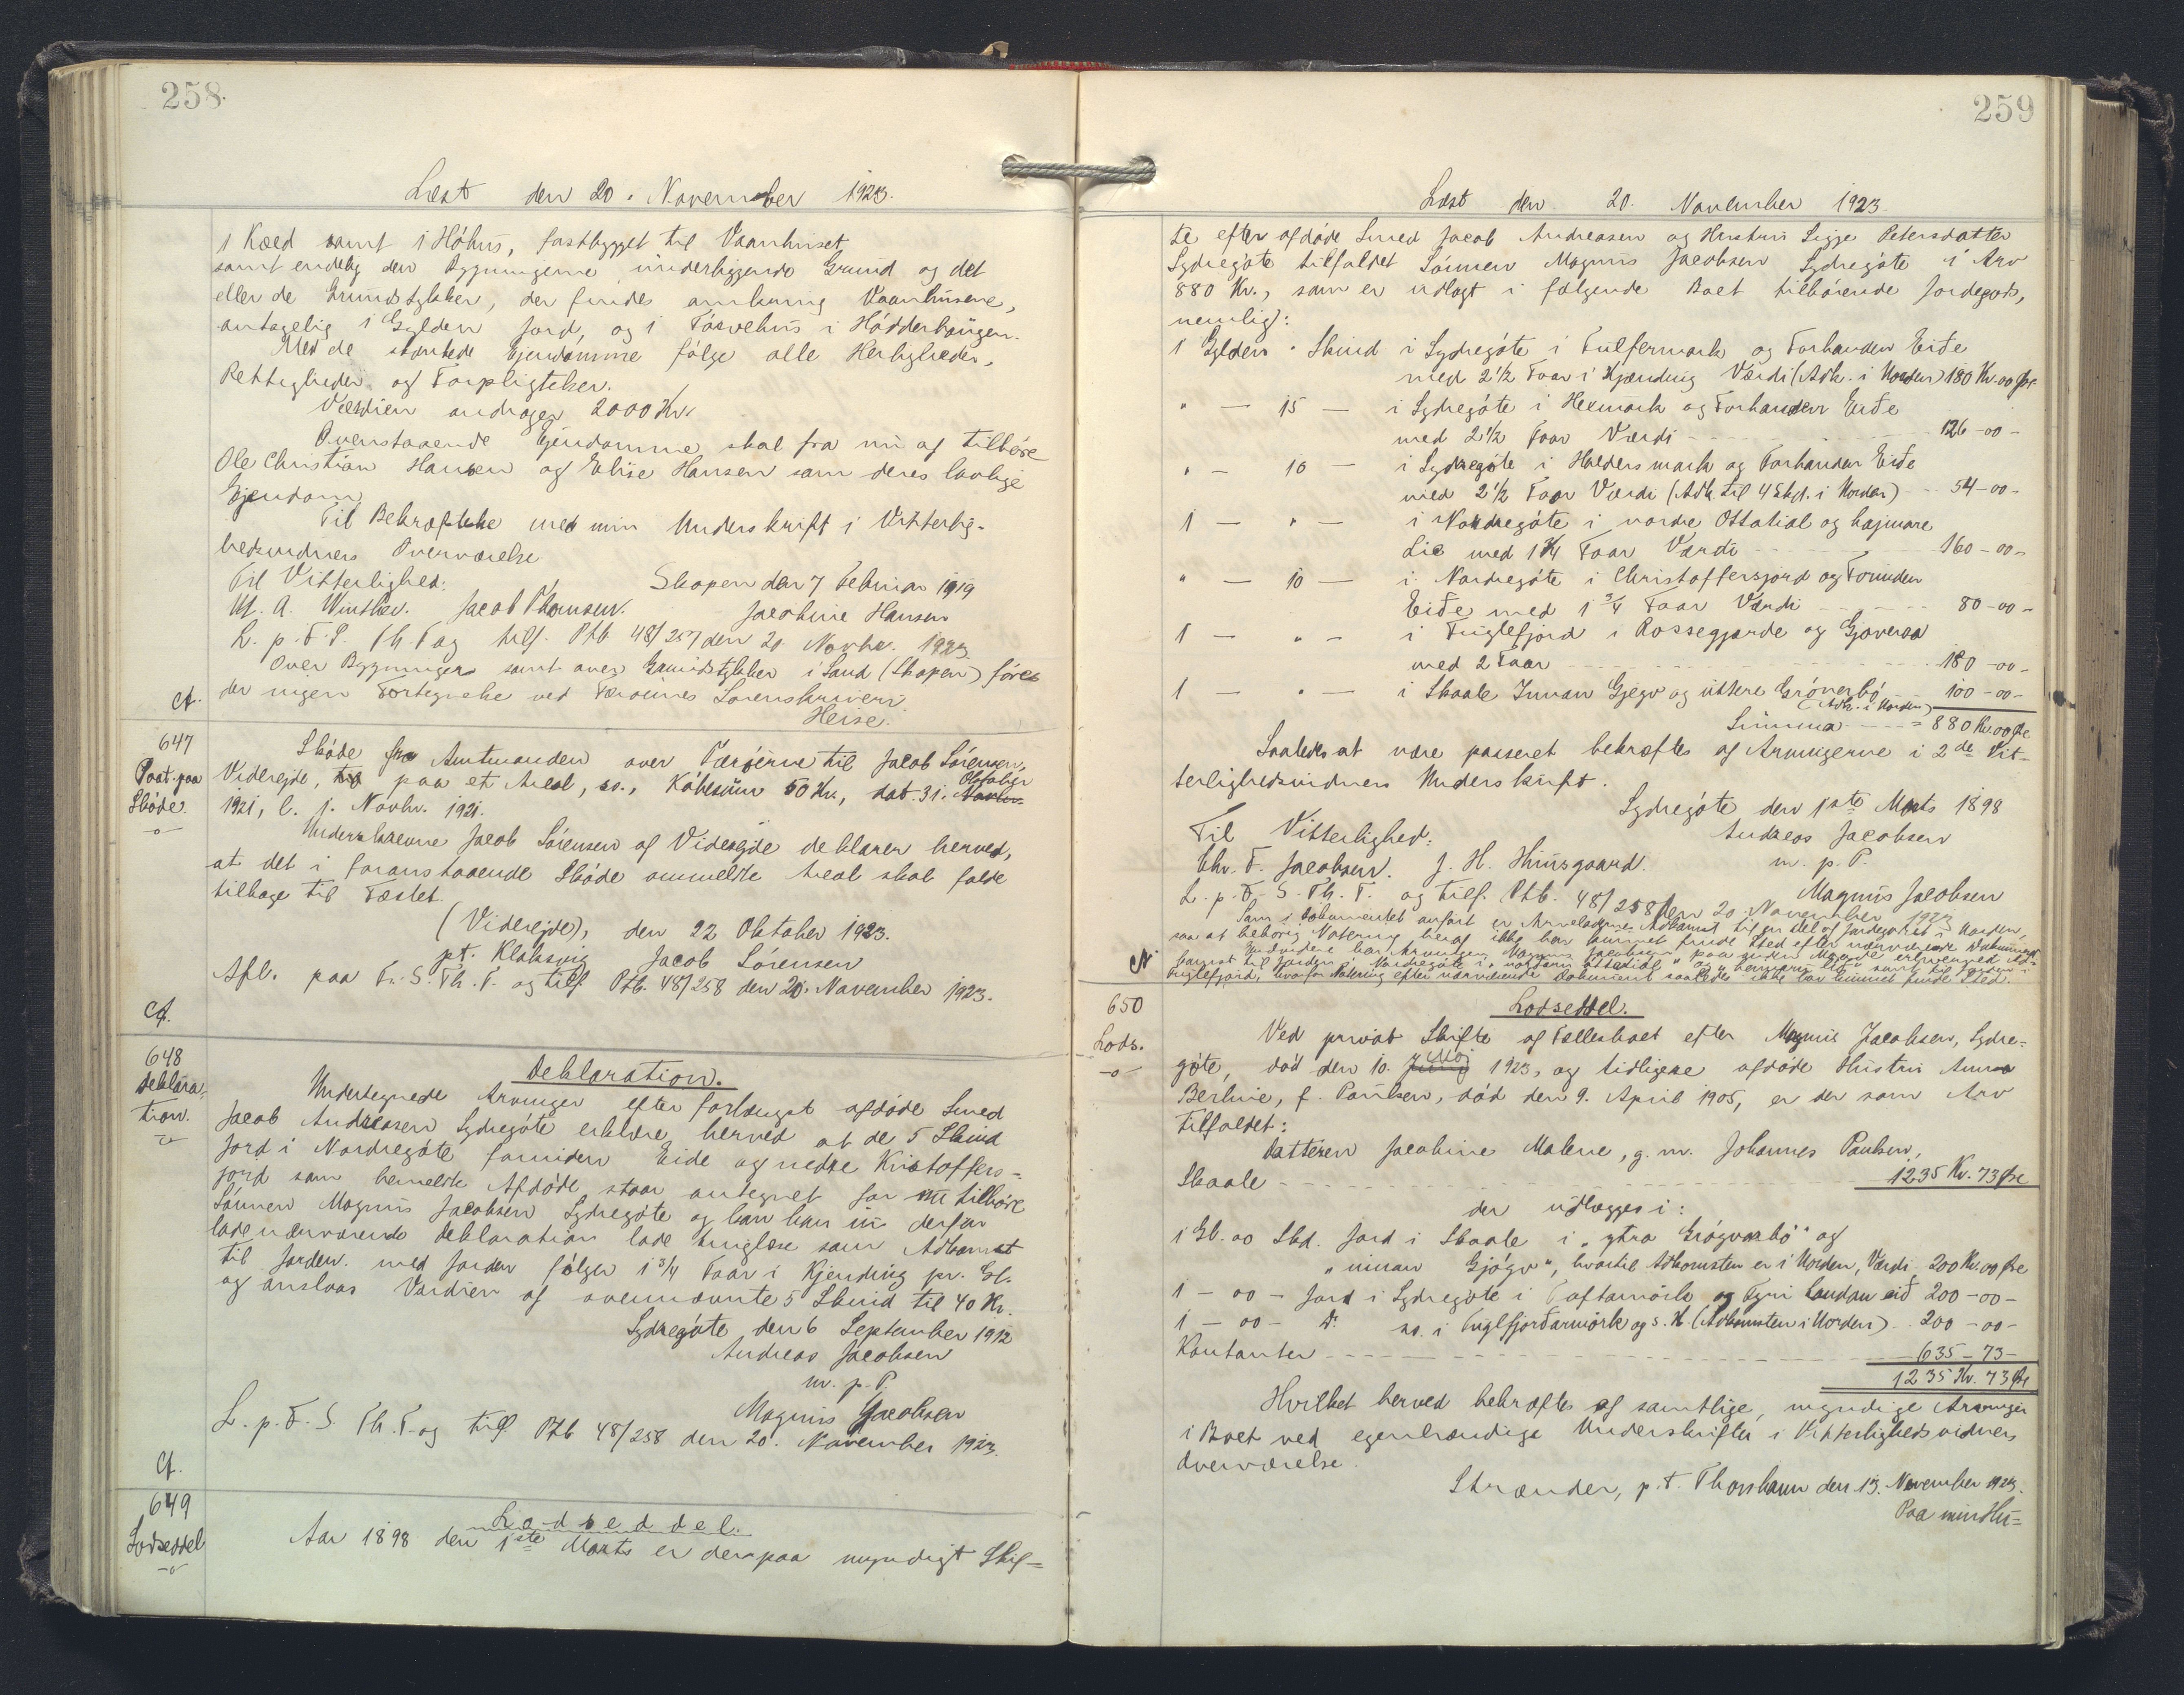 258.
Læst den 20. November 1923.
1 Kæld samt i Hóhus, fastbygget til Vaanhuset
samt endelig den Bygningerne underliggende Grund og det
eller de Grundstykker, der findes omkring Vaanhusene,
antagelig 1 Gylden Jord, og 1 Tórvehus i Hódderhaugen.
Med de skøntede Ejendomme følge alle Herligheder,
Rettigheder og Forpligtelser.
Værdien andrager 2000 Kr.
Ovenstaaende Ejendomme skal fra nu af tilhøre
Ole Christian Hansen og Elise Hansen som deres lovlige
Ejendom
Til Bekræftelse med min Underskrift i Vitterlig-
hedsvidners Overværelse
Til Vitterlighed: Skopen den 7 Februar 1919
M. A. Winther. Jacob Thomsen. Jacobine Hansen
L. p. F. S. Th. T og tilf. Ptb. 48/257 den 20 Novbr. 1923.
Over Bygninger samt over Grundstykker i Sand (Skopen) føres
der ingen Fortegnelse ved Færøernes Sorenskriveri
Heise.
Cf.
647
Paat. paa
Skøde.
Skøde fra Amtmanden over Færøerne til Jacob Sørensen,
Viderejde, paa et Areal, so., Købesum 50 Kr., dat. 31. Novbr. Oktober
1921, l. 1. Novbr. 1921.
Underskrevne Jacob Sørensen af Viderejde deklarer herved,
at det i foranstaaende Skøde ommeldte Areal skal falde
tilbage til Fæstet.
(Viderejde), den 22 Oktober 1923.
pt. Klaksvig Jacob Sörensen
Afl. paa F. S. Th. T. og tilf. Ptb. 48/258 den 20. November 1923.
Cf.
648
Deklara-
tion.
Deklaration.
Undertegnede Arvinger efter forlængst afdøde Smed
Jacob Andreasen Sydregøte erklære herved at de 5 Skind
Jord i Nordregøte forniden Eide og nedre Kristoffers-
jord som bemeldte Afdøde staar antegnet for nu tilhøre
Sønnen Magnus Jacobsen Sydregøte og kan han nu derfor
lade nærværende Deklaration lade tinglæse som Adkomst
til Jorden. Med Jorden følger 1 3/4 Faar i Kjending pr. Gl.
og anslaas Værdien af ovennævnte 5 Skind til 40 Kr.
Sydregøte den 6 September 1912
Andreas Jacobsen
m. p. P.
Magnus Jacobsen
L. p. F. S. Th. T. og tilf. Ptb 48/258 den 20. November 1923.
Cf.
649
Lodseddel
Lodseddel.
Aar 1898 den 1ste Marts er der paa myndigt Skif-
259
Læst den 20. November 1923.
te efter afdøde Smed Jacob Andreasen og Hustru Sigge Petersdatter
Sydregøte tilfaldet Sønnen Magnus Jacobsen Sydregøte i Arv
880 Kr., som er udlagt i følgende Boet tilhørende Jordegods,
nemlig:
1 Gylden " Skind i Sydregøte i Fulfermark og Forhanden Eiðe
med 2 1/2 Faar i Kjending Værdi (Adk. i Uorden) 180 Kr. 00 Øre
" — 15 — i Sydregøte i Heimark og Forhanden Eiðe
med 2 1/2 Faar Værdi 126-00-
" — 10 — i Sydregøte i Haldersmark og Forhanden Eiðe
med 2 1/2 Faar Værdi (Adk. til 4 Skd. i Uorden) 54-00-
1 — " — i Nordregøte i nordre Ottatial og hajmare
Lie med 1 3/4 Faar Værdi 160-00-
" — 10 — i Nordregøte i Christoffersjord og Forniden
Eiðe med 1 3/4 Faar Værdi 80-00-
1 — " — i Fuglefjord i Rossegjerde og Gjoveraa
med 2 Faar 180-00-
1 — " — i Skaale Innan Gjegv og úttere Gróvarbø 100-00-
(Adk. i Uorden)
Summa = 880 Kr. 00 Øre
Saaledes at være passeret bekræftes af Arvingerne i 2de Vit-
terlighedsvidners Underskrift.
Sydregøte den 1ste Marts 1898
Til Vitterlighed: Andreas Jacobsen
Chr. F. Jacobsen. J. H. Huusgaard. m. p. P.
Magnus Jacobsen
L. p. F. S. Th. T. og tilf. Ptb. 48/258 den 20. November 1923
Som i Dokumentet anført er Arveladerne Adkomst til en Del af Jordegodset i Uorden,
saa at behørig Notering heraf ikke har kunnet finde Sted efter nærværende Dokument.
Endvidere har Arvingen Magnus Jacobsen paa anden Maade erhvervet Ad-
komst til Jorden i Nordregøte i "nordara Ottatiale" og "hemmara Lie" samt til Jorden i
Fuglefjord, hvorfor Notering efter nærværende Dokument saaledes ikke har kunnet finde Sted.
Cf.
650
Lods.
Lodseddel.
Ved privat Skifte af Fællesboet efter Magnus Jacobsen, Sydre-
gøte, død den 10. Juni Maj 1923, og tidligere afdøde Hustru Anna
Berline, f. Poulsen, død den 9. April 1905, er der som Arv
tilfaldet:
Datteren Jacobine Malene, g. m. Johannes Poulsen,
Skaale 1235 Kr. 73 Øre
der udlægges i:
1 Gl. 00 Skd. Jord i Skaale i "ytra Grógvarbø" og
"innan Gjógv", hvortil Adkomsten er i Uorden, Værdi 200 Kr. 00 Øre
1 — 00 — Jord i Sydregøte i Toftamörk og Fyri handan eið 200-00-
1 — 00 — D. so. i Fuglfjorðarmörk og s. H (Adkomsten i Uorden) 200-00-
Kontanter 635-73-
1235 Kr. 73 Øre
Hvilket herved bekræftes af samtlige, myndige Arvinger
i Boet ved egenhændige Underskrifter i Vitterlighedsvidners
Overværelse.
Strænder, p. t. Thorshavn den 13. November 1923.
Paa min Hu-